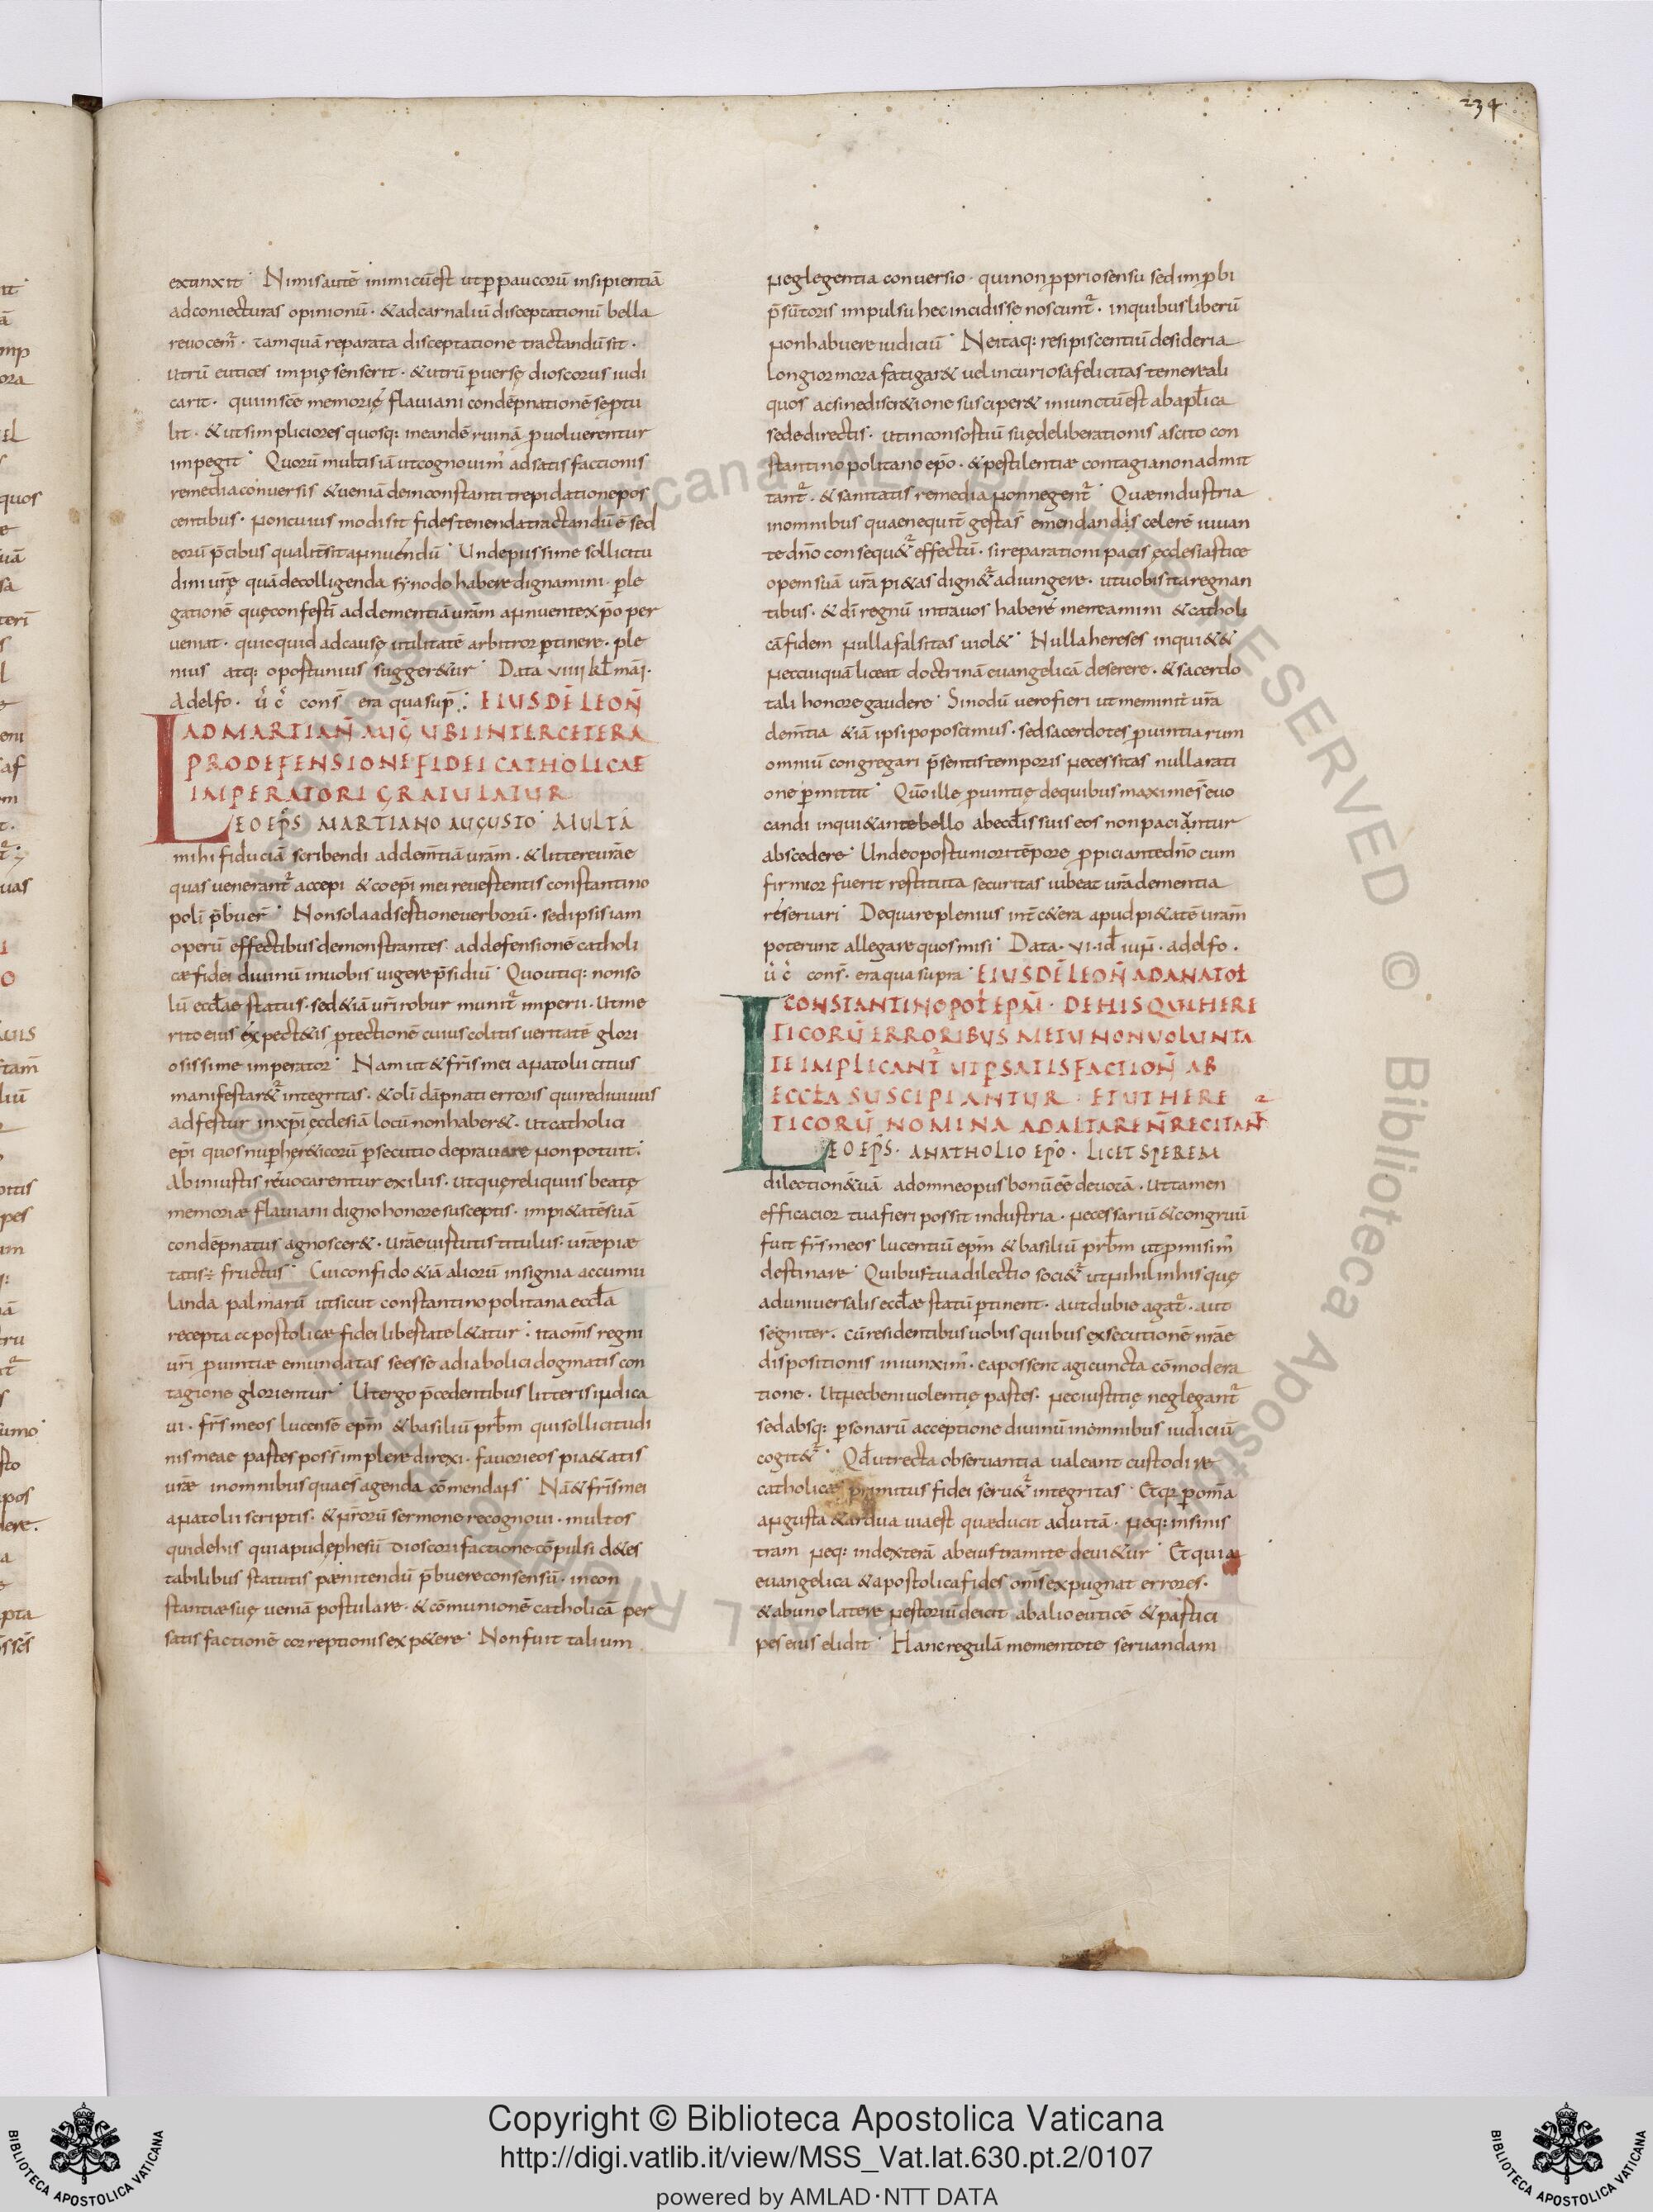 234
extinxit · Nimis autē inimicū est ut p paucorū insipientiā
ad coniecturas opinionū · & ad carnaliū disceptationū bella
reuocem̄ · tamquā reparata disceptatione tractandū sit ·
utrū eutices impię senserit · & utrū peruersę dioscorus iudi
carit · qui in scē memorię flauiani condēpnatione
lit · & ut simpliciores quosq: in eandē ruinā puoluerentur
impegit · Quorū multis iā ut cognouim' ad satisfactionis
remedia conuersis & ueniā de inconstanti trepidatione pos
centibus · non cuius modi sit fides tenenda tractandū ē sed
eorū p̄cibus qualit̄ sit annuendū · Unde piissime sollicitu
dini urę quā de colligenda synodo habere dignamini · p le
gationē quę confestī ad clementiā urām annuente xp̄o per
ueniat · quicquid ad causę utilitatē arbitror ptinere · ple
nius atq: oportunius sugger&ur · Data VIIII kł mai ·
Adelfo · ū c̄ cons̄ era qua sup̄ : EIUSDĒ LEON̄
AD MARTIAN̄ AUḠ UBI INTER CETERA
PRO DEFENSIONE FIDEI CATHOLICAE
IMPERATORI GRATULATUR
LEO EP̄S MARTIANO AUGUSTO · MULTĀ
mihi fiduciā scribendi ad clem̄tiā urām · & littere urāe
quas uenerant̄ accepi & coep̄i mei reuertentis constantino
poli p̄buer̄ · Non sola adsertione uerborū · sed ipsis iam
operū effectibus demonstrantes ad defensionē catholi
cæ fidei diuinū in uobis uigere p̄sidiū · Quo utiq: non so
lū eccłae status · sed & iā ur̄i robur munit̄ imperii · Ut me
rito eius expect&is p tectionē cuius colitis ueritatē glori
osissime imperator · Nam ut & fr̄is mei anatolii citius
manifestar&̄ integritas · & olī dāpnati erroris qui rediuiuus
adfertur in xp̄i ecclesiā locū non haber& · ut catholici
ep̄i quos nup her&icorū psecutio deprauare non potuit ·
Ab iniustis reuocarentur exiliis · utquę reliquiis beatę
memoriæ flauiani digno honore susceptis · impi&atē suā
condēpnatus agnoscer& · urāe uirtutis titulus · urāe piæ
tatis fructus · Cui confido & iā aliorū insignia accumu
landa palmarū ut sicut constantinopolitana eccła
recepta apostolicæ fidei libertate l&atur · ita om̄s regni
ur̄i puintiæ emundatas se esse a diabolici dogmatis con
tagione glorientur · Ut ergo p̄cedentibus litteris indica
ui · fr̄s meos lucensē ep̄m & basiliū prbm̄ qui sollicitudi
nis meae partes poss implere direxi · fauori eos pia&atis
urāe in omnibus quae s̄ agenda cōmendans · Nā & fr̄is mei
anatolii scriptis · & nr̄orū sermone recognoui · multos
qui de his qui apud ephesū dioscori factione cōpulsi d&es
tabilibus statutis pænitendū p̄buere consensū · incon
stantiæ suę ueniā postulare · & cōmunionē catholicā per
satisfactionē correptionis exp&ere · Non fuit talium
neglegentia conuersio · qui non pprio sensu sed in pbi
p̄sūtoris impulsu hec incidisse noscunt̄ · in quibus liberū
non habuere iudiciū · Ne itaq: resipiscentiū desideria
longior mora fatigar& uel incuriosa felicitas temere ali
quos ac sine discr&ione susciper& iniunctū est ab apłica
sede directis · ut in consortiū suę deliberationis ascito con
stantinopolitano ep̄o · & pestilentiæ contagia non admit
tant̄ · & sanitatis remedia non negent̄ · Quæ industria
in omnibus quae nequit̄ gesta s̄ emendandis celerē iuuan
te dn̄o consequ&̄ effectū · si reparationi pacis ęcclesiastice
opem suā urā pi&as dign&̄ adiungere · ut uobis ita regnan
tibus · & dī regnū intra uos habere mereamini & catholi
cā fidem nulla falsitas uiol& · Nulla hereses inqui&&
nec cuiquā liceat doctrinā euangelicā deserere · & sacerdo
tali honore gaudere · Sinodū uero fieri ut meminit urā
clem̄tia & iā ipsi poposcimus · sed sacerdotes puintiarum
omniū congregari p̄sentis temporis necessitas nulla rati
one p̄mittit · Quō ille puintię de quibus maxime s̄ euo
candi inqui&ante bello ab eccłis suis eos non paciantur
abscedere · Unde oportuniori tēpore ppiciante dn̄o cum
firmior fuerit restituta securitas iubeat urā clementia
reseruari · De qua re plenius int̄ c&era apud pi&atē urām
poterunt allegare quos misi · Data · VI · id iun̄ · adelfo ·
ū c̄ cons̄ · era qua supra · EIUSDĒ LEON̄ AD ANATOL
CONSTANTINOPOL EPM̄ · DE HIS QUI HERE
TICORŪ ERRORIBUS METU NON VOLUNTA
TE IMPLICANT̄ UT P SATISFACTION̄ AB
ECCLA SUSCIPIANTUR : ET UT HERE
TICORŪ NOMINA AD ALTARE N̄ RECITANT̄
LEO EP̄S · ANATHOLIO EP̄O · LICET SPEREM
dilection& uā ad omne opus bonū ēē deuotā · Ut tamen
efficacior tua fieri possit industria · necessariū & congruū
fuit fr̄s meos lucentiū ep̄m & basiliū prbm̄ ut pmisim'
destinare · Quibus tua dilectio soci&̄ ut nihil in his quę
ad uniuersalis eccłæ statū ptinent · aut dubie agat̄ · aut
segniter · cū residentibus uobis quibus exsecutionē nrāe
dispositionis iniunxim' · ea possent agi cuncta cōmodera
tione · Ut nec beniuolentię partes · nec iustitię neglegant̄
sed absq: psonarū acceptione diuinū in omnibus iudiciū
cogit&̄ · Qd̄ ut recta obseruantia ualeant custodire
catholicæ primitus fidei seru&̄ integritas · Et qr p om̄a
angusta & ardua uia est quæ ducit ad uitā · neq: in sinis
tram neq: in dexterā ab eius tramite deui&ur · Et quia
euangelica & apostolica fides om̄s expugnat errores ·
& ab uno latere nestoriū deicit ab alio euticē & partici
pes eius elidit · Hanc regulā mementote seruandam
Copyright © Biblioteca Apostolica Vaticana
http://digi.vatlib.it/view/MSS_Vat.lat.630.pt.2/0107
powered by AMLAD·NTT DATA
BIBLIOTECA APOSTOLICA VATICANA
BIBLIOTECA APOSTOLICA VATICANA